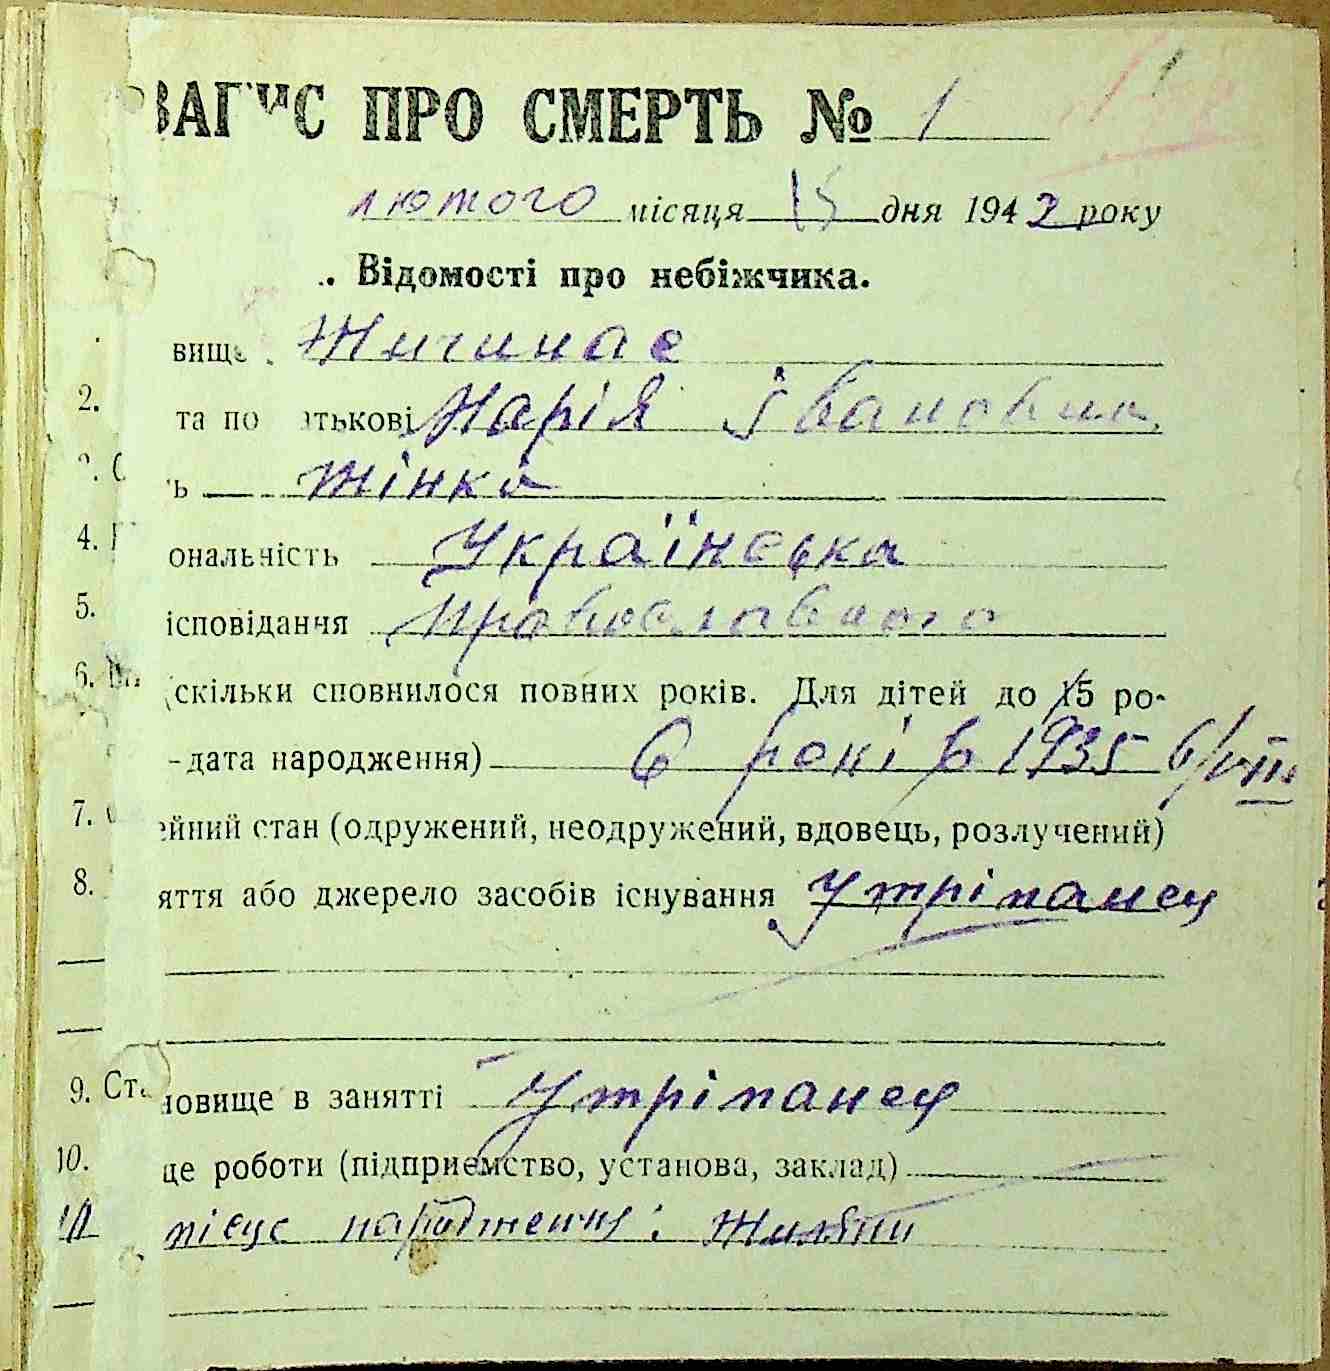 ЗАПИС ПРО СМЕРТЬ № 1
лютого місяця 15 дня 1942 року
Відомості про небіжчика.
вище
2. та по батькові Марія Івановна
ь жінка
4. ональність Українська
5. ісповідання Православного
6. (скільки сповнилося повних років. Для дітей до 15 ро-
-дата народження) 6 рокі в 1935 6/VIII
7. ейний стан (одружений, неодружений, вдовець, розлучений)
8. яття або джерело засобів існування Утріманец
9. Становище в занятті Утріманец
10. це роботи (підприємство, установа, заклад)
11 місце народження: Жиляни